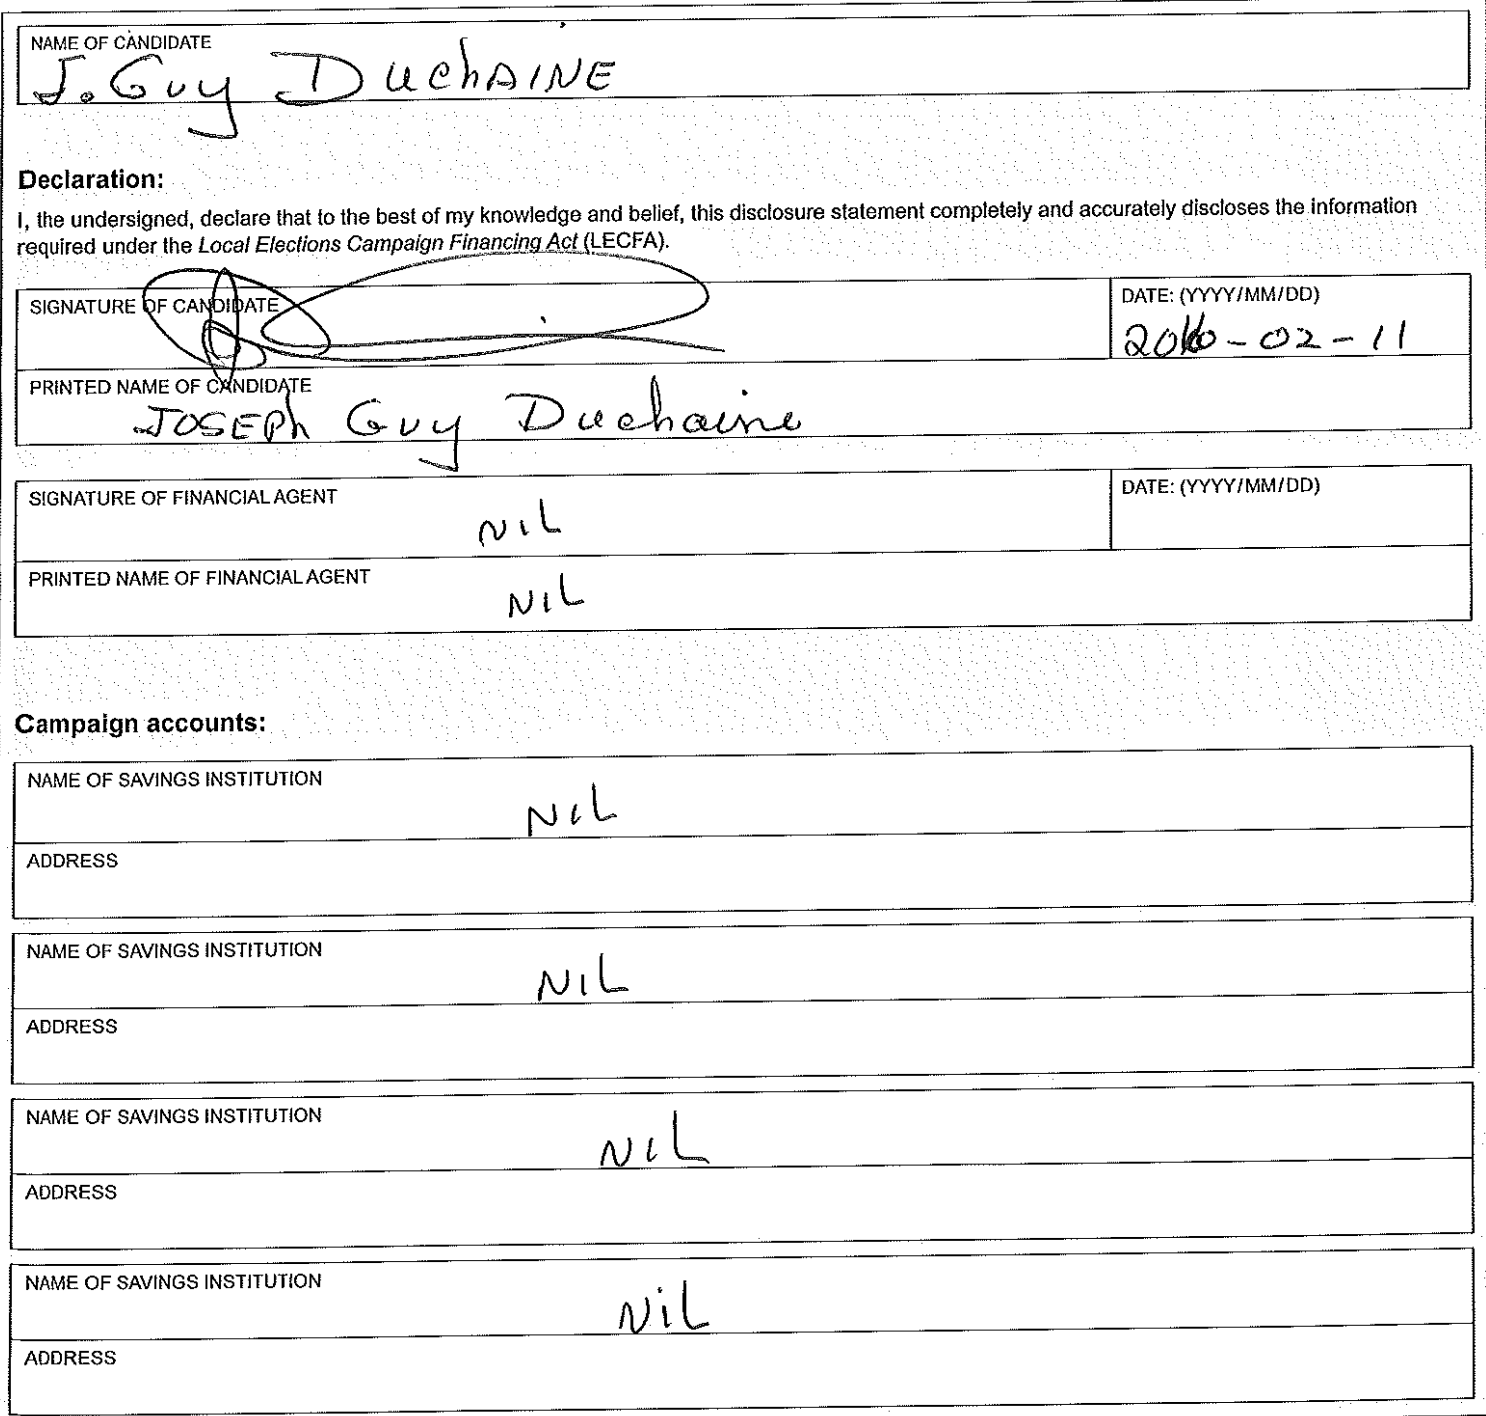 NAME OF CANDIDATE
J. Guy DuchAINE
Declaration:
I, the undersigned, declare that to the best of my knowledge and belief, this disclosure statement completely and accurately discloses the information
required under the Local Elections Campaign Financing Act (LECFA).
SIGNATURE OF CANDIDATE
DATE: (YYYY/MM/DD)
2016-02-11
PRINTED NAME OF CANDIDATE
JOSEPh Guy Duchaine
SIGNATURE OF FINANCIAL AGENT
NiL
DATE: (YYYY/MM/DD)
PRINTED NAME OF FINANCIAL AGENT
NiL
Campaign accounts:
NAME OF SAVINGS INSTITUTION
NiL
ADDRESS
NAME OF SAVINGS INSTITUTION
NiL
ADDRESS
NAME OF SAVINGS INSTITUTION
NiL
ADDRESS
NAME OF SAVINGS INSTITUTION
NiL
ADDRESS